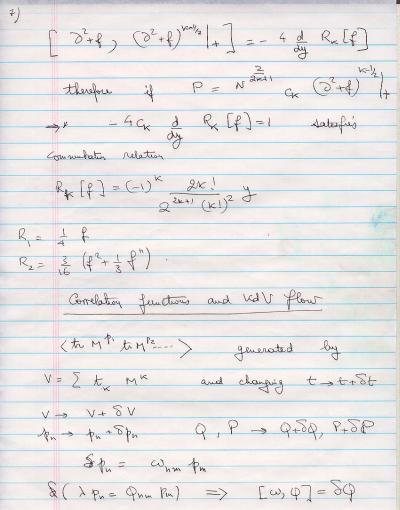 7)
[ ∂²+f , (∂²+f)^{k-1/2}|₊ ] = - 4 d/dy R_k [f]
therefore if P = N^{2/2k+1} c_k (∂²+f)^{k-1/2}|₊
⇒ - 4c_k d/dy R_k [f] = 1 satisfies
commutator relation
R_k [f] = (-1)^k 2k! / 2^{2k+1} (k!)² y
R₁ = 1/4 f
R₂ = 3/16 (f² + 1/3 f'').
Correlation functions and KdV flow
<tr M^{p₁} tr M^{p₂} ....> generated by
V = Σ t_k M^k and changing t → t+δt
V → V + δV
p_n → p_n + δp_n Q, P → Q+δQ, P+δP
δp_n = ω_{nm} p_m
δ( λ p_n = Q_{nm} p_m) ⇒ [ω, Q] = δQ